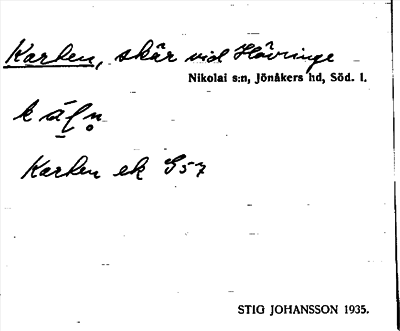 Karken, skär vid Hävringe
Nikolai s:n, Jönåkers hd, Söd. l.
Karken ek G57
STIG JOHANSSON 1935.